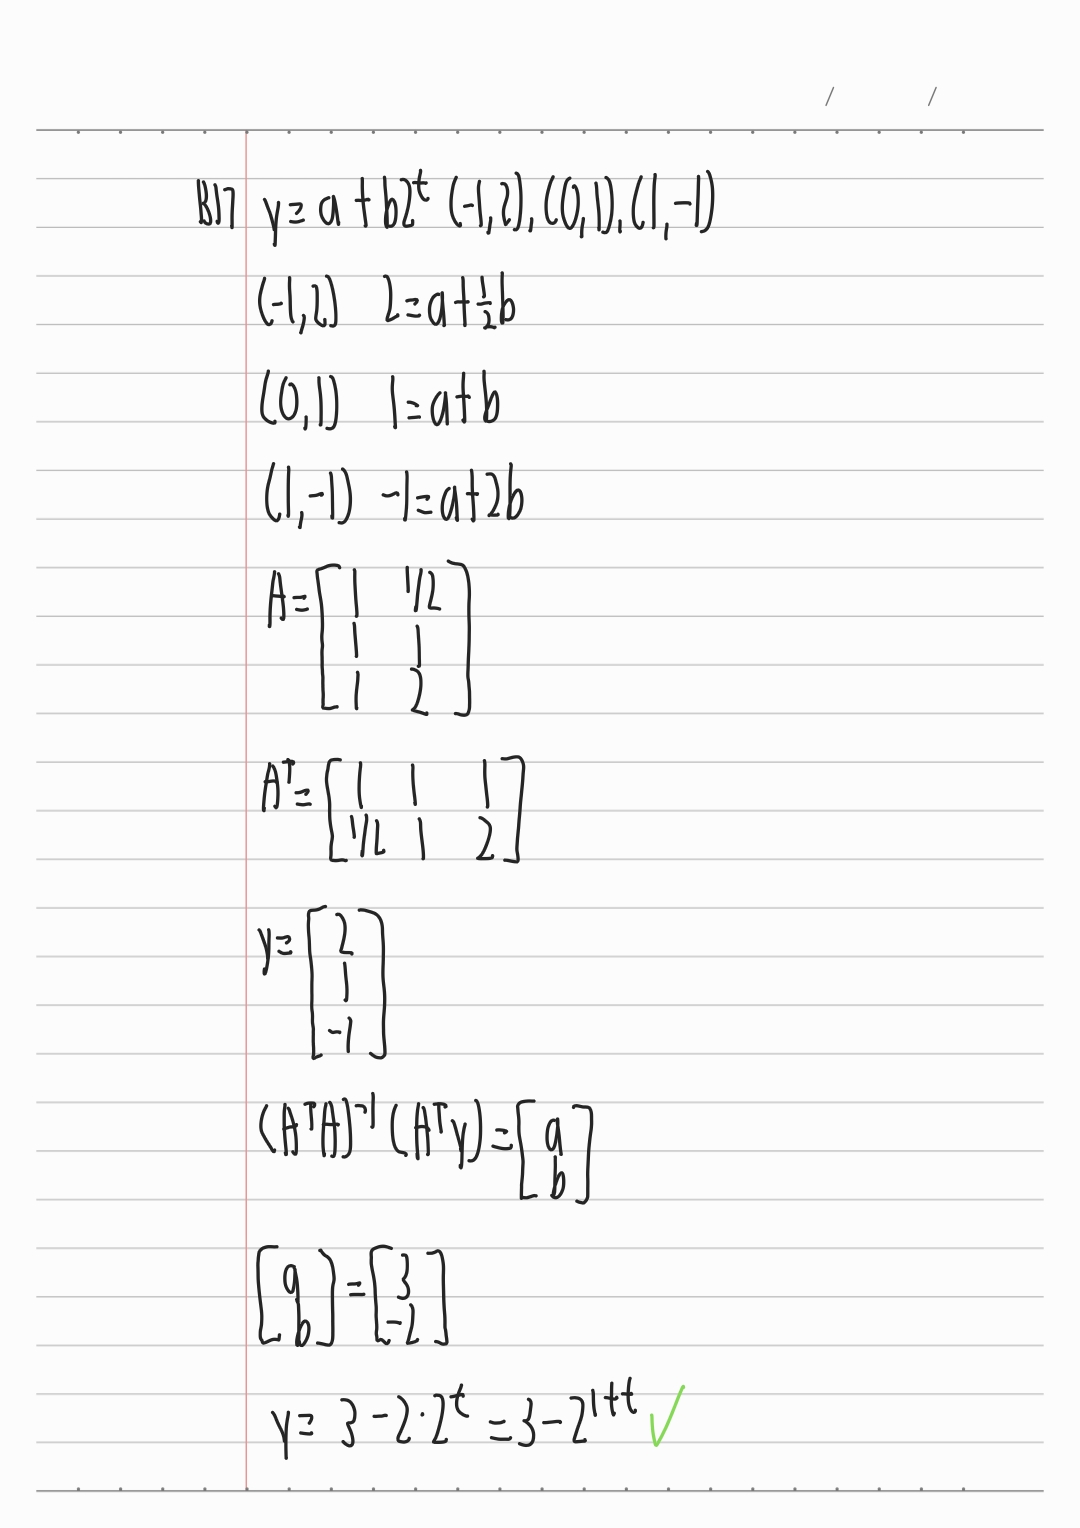 / /
B17 y = a + b2^t (-1,2), (0,1), (1,-1)
(-1,2) 2 = a + 1/2 b
(0,1) 1 = a + b
(1,-1) -1 = a + 2b
A = [1 1/2
1 1
1 2]
A^T = [1 1 1
1/2 1 2]
y = [2
1
-1]
(A^T A)^-1 (A^T y) = [a
b]
[a
b] = [3
-2]
y = 3 - 2·2^t = 3 - 2^1+t ✓